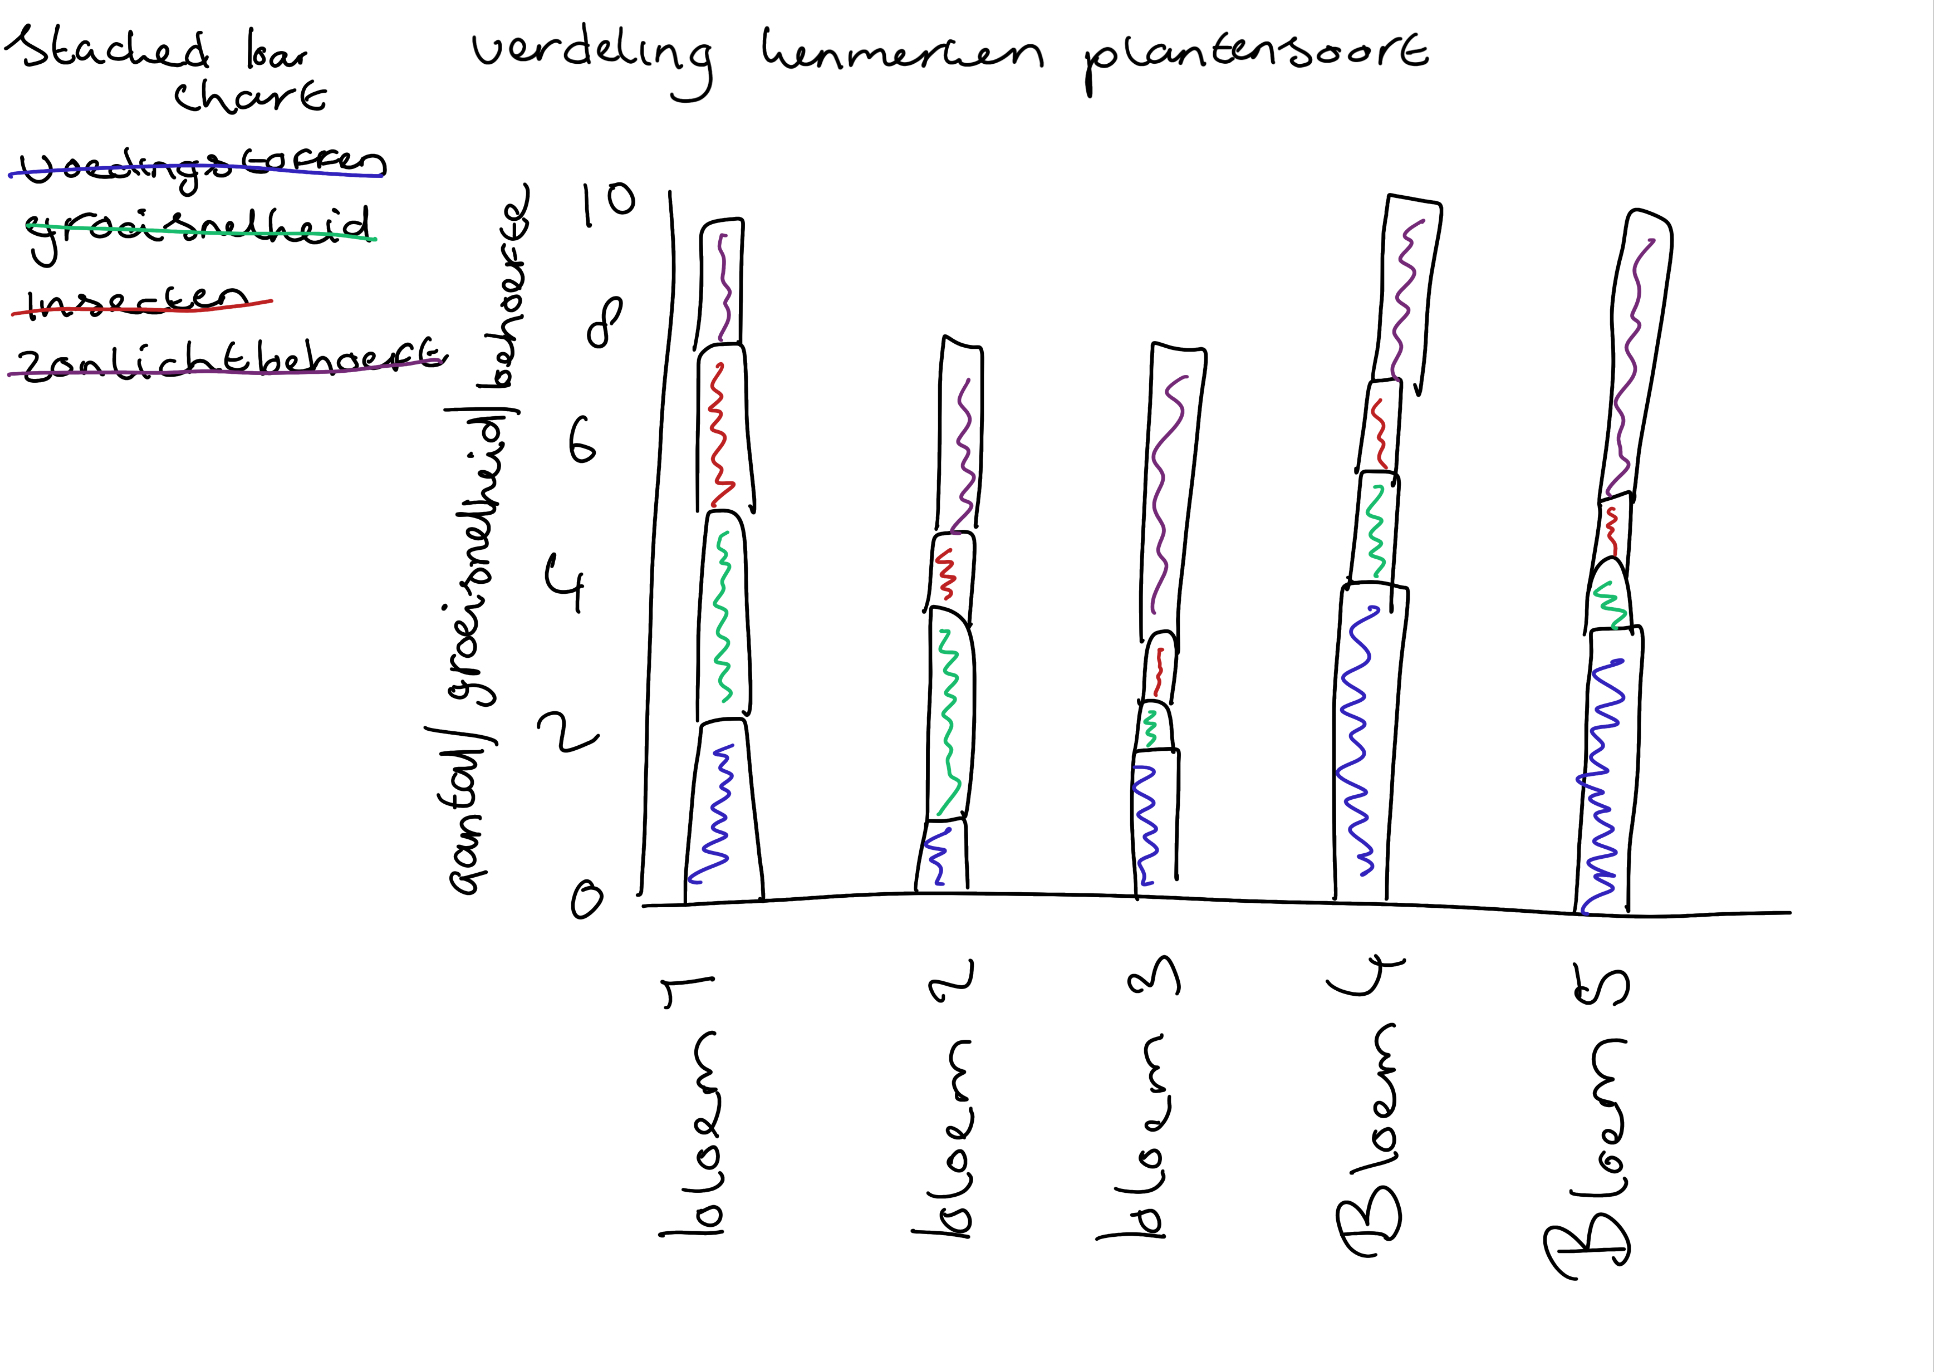 Stached bar
chart
verdeling kenmerken plantensoort
voedingstoffen
groeisnelheid
Insecten
zonlichtbehoefte
aantal/groeisnelheid/behoefte
10
8
6
4
2
0
bloem 1
bloem 2
bloem 3
Bloem 4
Bloem 5